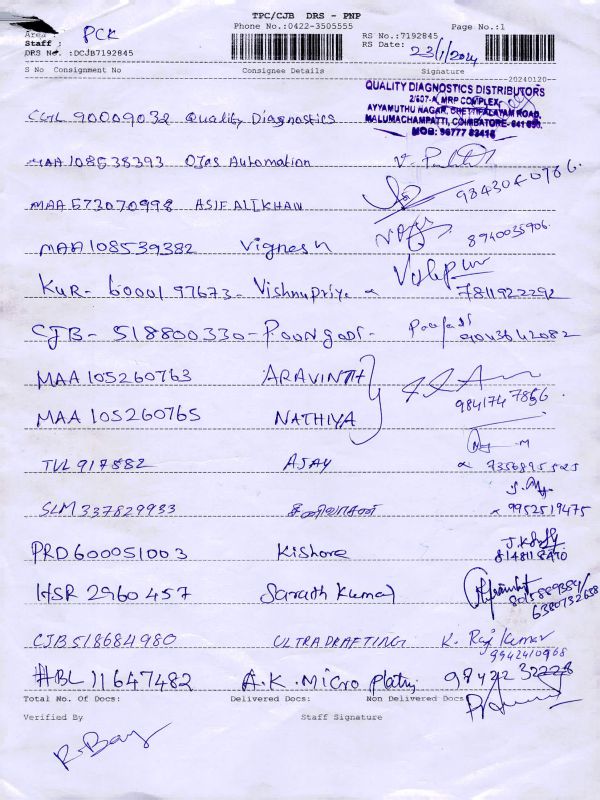 TPC/CJB DRS - PNP
Phone No.:0422-3505555 Page No.:1
Area : PCK RS No.:7192845
Staff : RS Date: 23/1/2024
DRS No. :DCJB7192845
S No Consignment No Consignee Details Signature
20240120
QUALITY DIAGNOSTICS DISTRIBUTORS
2/607-A, MRP COMPLEX,
AYYAMUTHU NAGAR, CHETTIPALAYAM ROAD,
MALUMACHAMPATTI, COIMBATORE- 641 050.
MOB: 96777 83416
90009032 Quality Diagnostics
MAA 108538393 Ojas Automation
MAA 573070998 ASIF ALI KHAN 98430 40786
MAA 108539382 Vignesh 8940035906
KUR- 60001 97673- Vishnupriya 7811922292
CJB- 518800330- Poongodi- 9043642082
MAA 105260763 ARAVINTH
MAA 105260765 NATHIYA 9841747866
TVL 917582 AJAY 7356895525
SLM 337829933 9952519475
PRD600051003 Kishore
HSR 2960457 Sarath Kumar 6380732638
CJB518684980 ULTRA DRAFTING K. Raj Kumar
9942410968
HBL 11647482 A.K. Micro 98422 32228
Total No. Of Docs: Delivered Docs: Non Delivered Docs:
Verified By Staff Signature